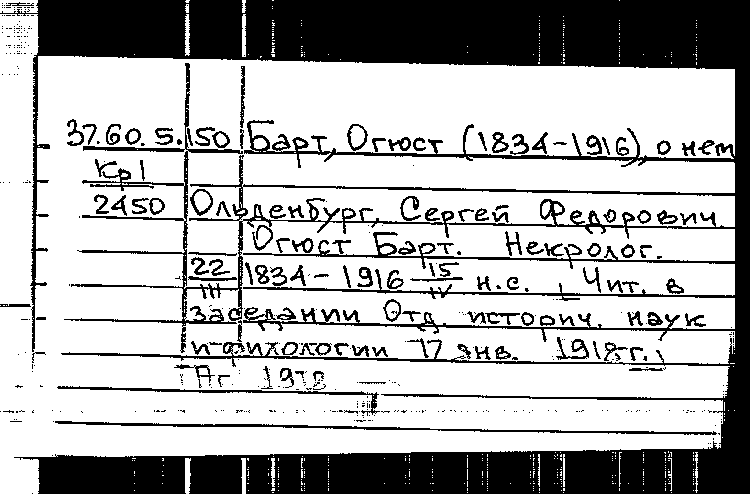 37.60.5.150 Барт, Огюст (1834-1916), о нем
Кр1
2450 Ольденбург, Сергей Федорович.
Огюст Барт. Некролог.
22/III 1834-1916 15/IV н.с. [Чит. в
заседании Отд. историч. наук
и филологии 17 янв. 1918 г.]
Пг 1918